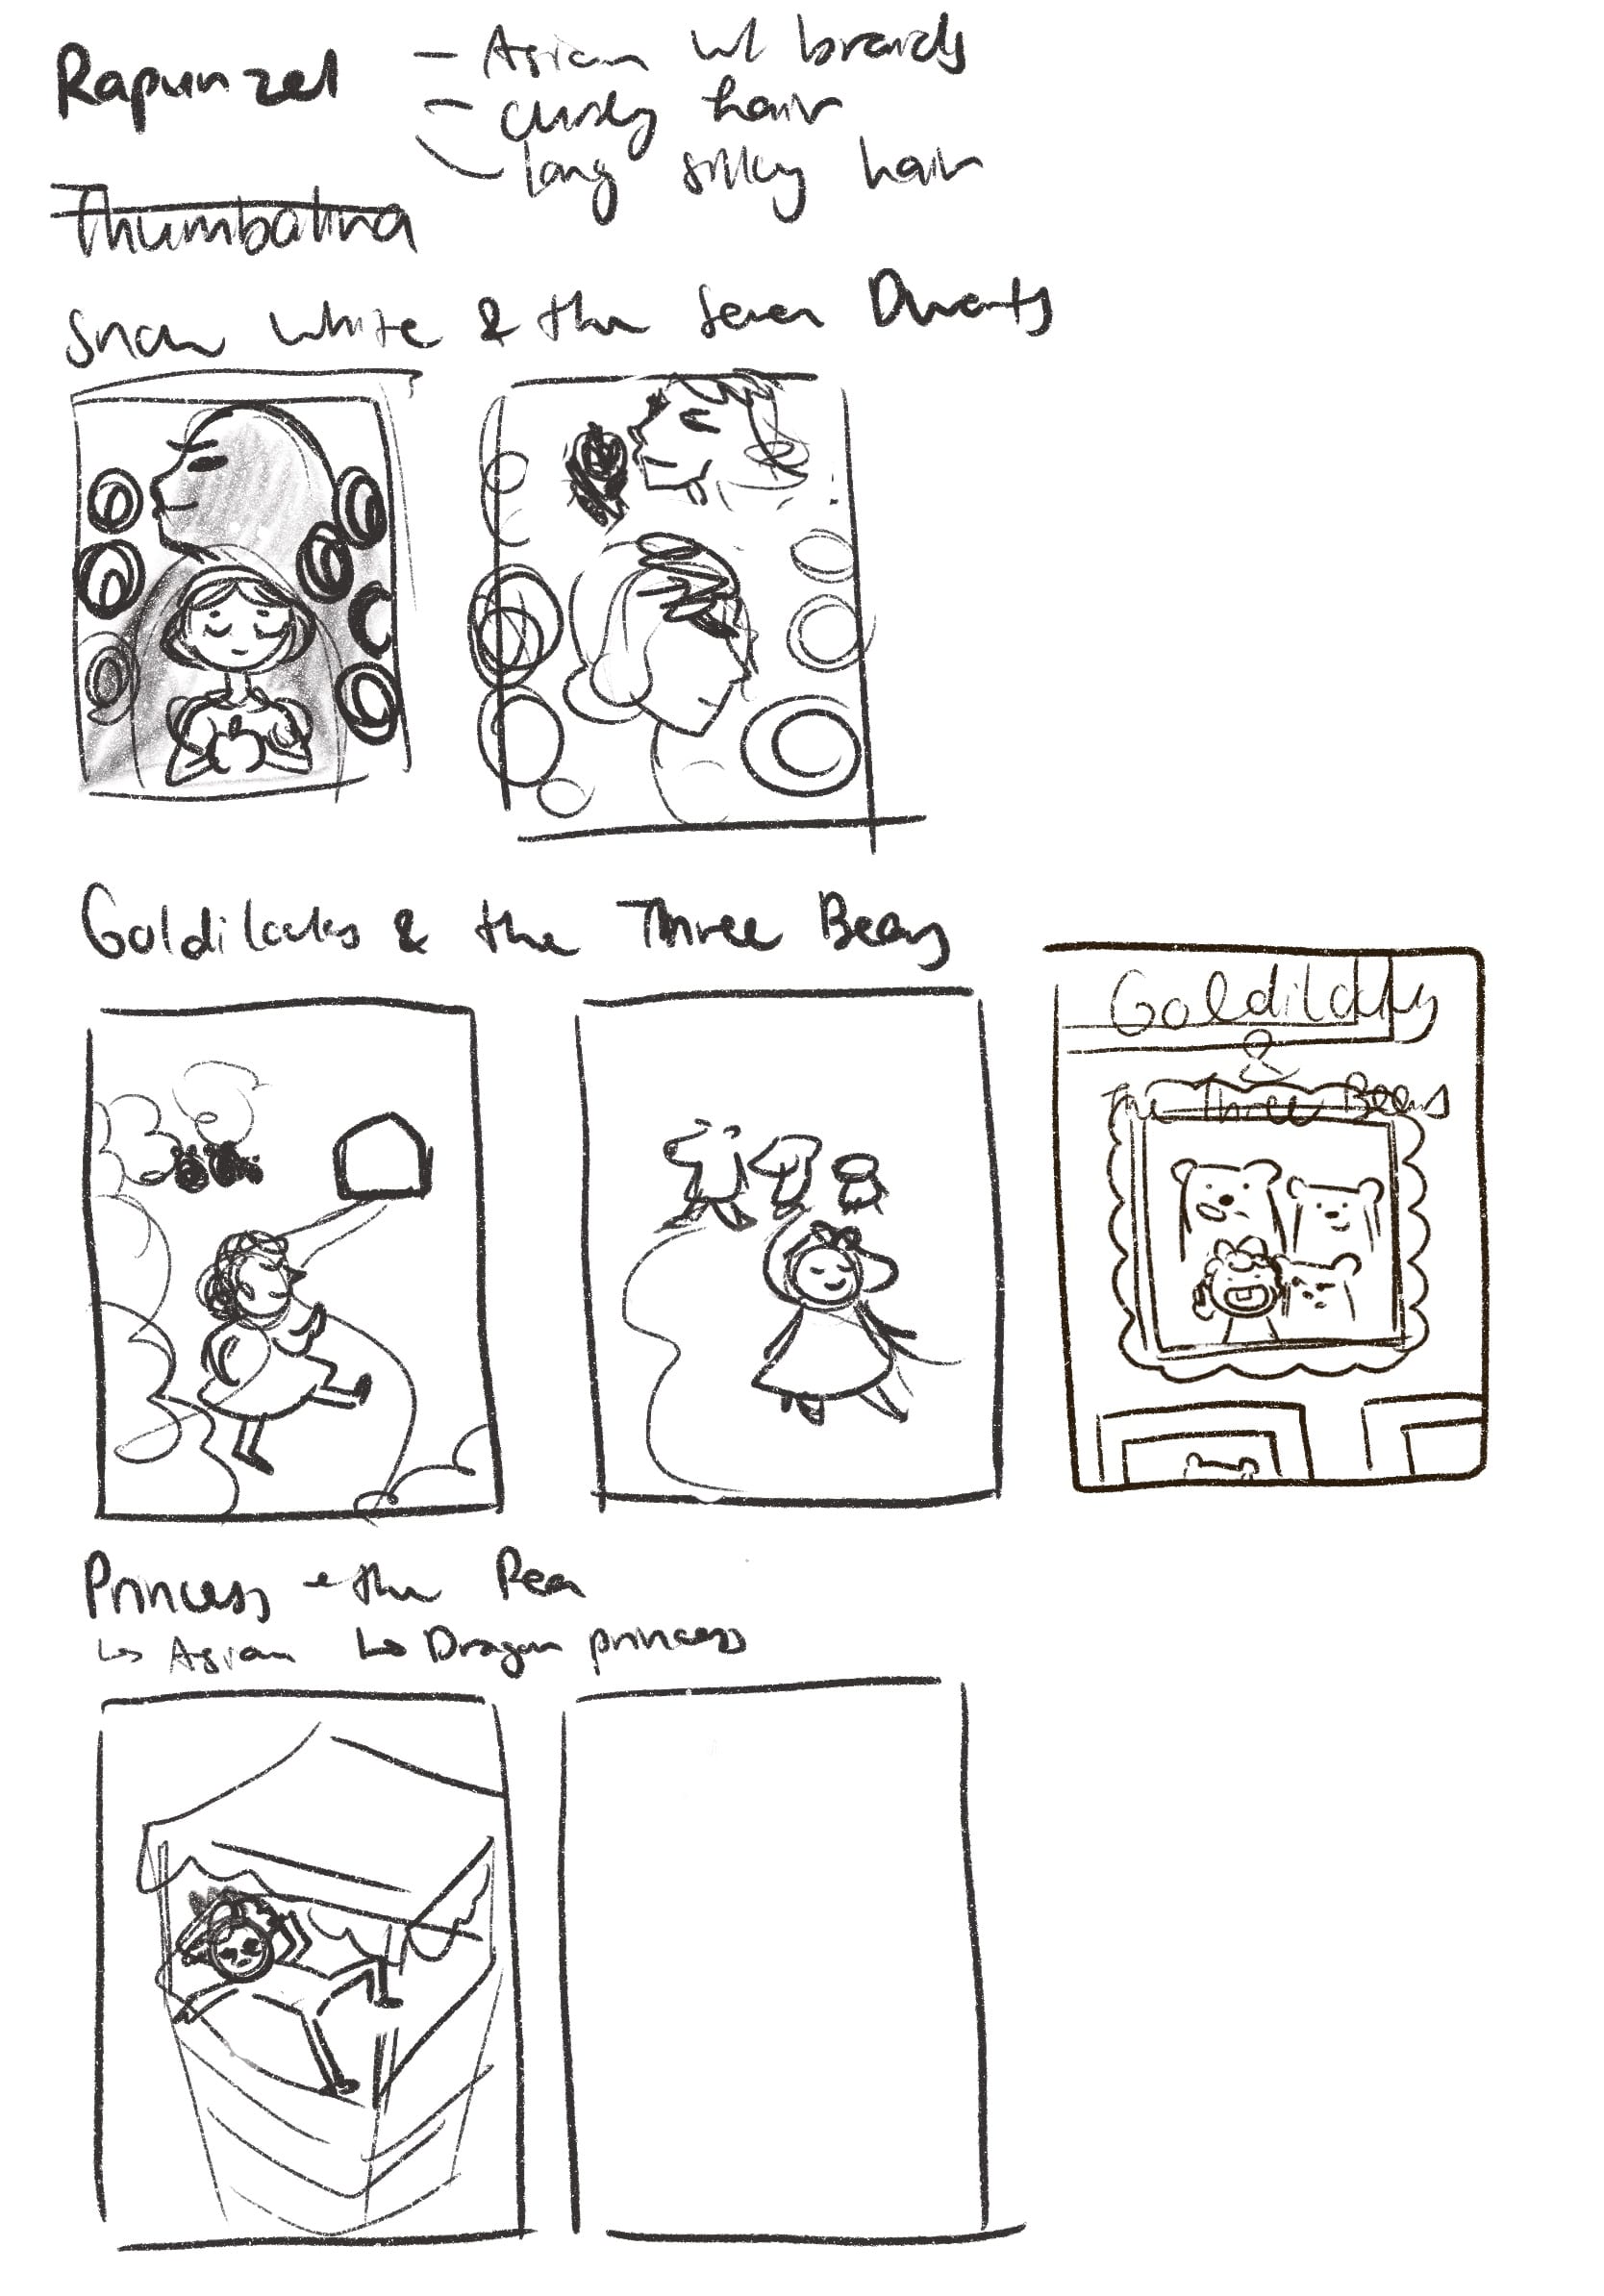 Rapunzel
- Asian w/ braids
- curly hair
- long silky hair
Thumbalina
Snow White & the Seven Dwarfs
Goldilocks & the Three Bears
Goldilocks
&
The Three Bears
Princess + the Pea
↳ Asian ↳ Dragon princess